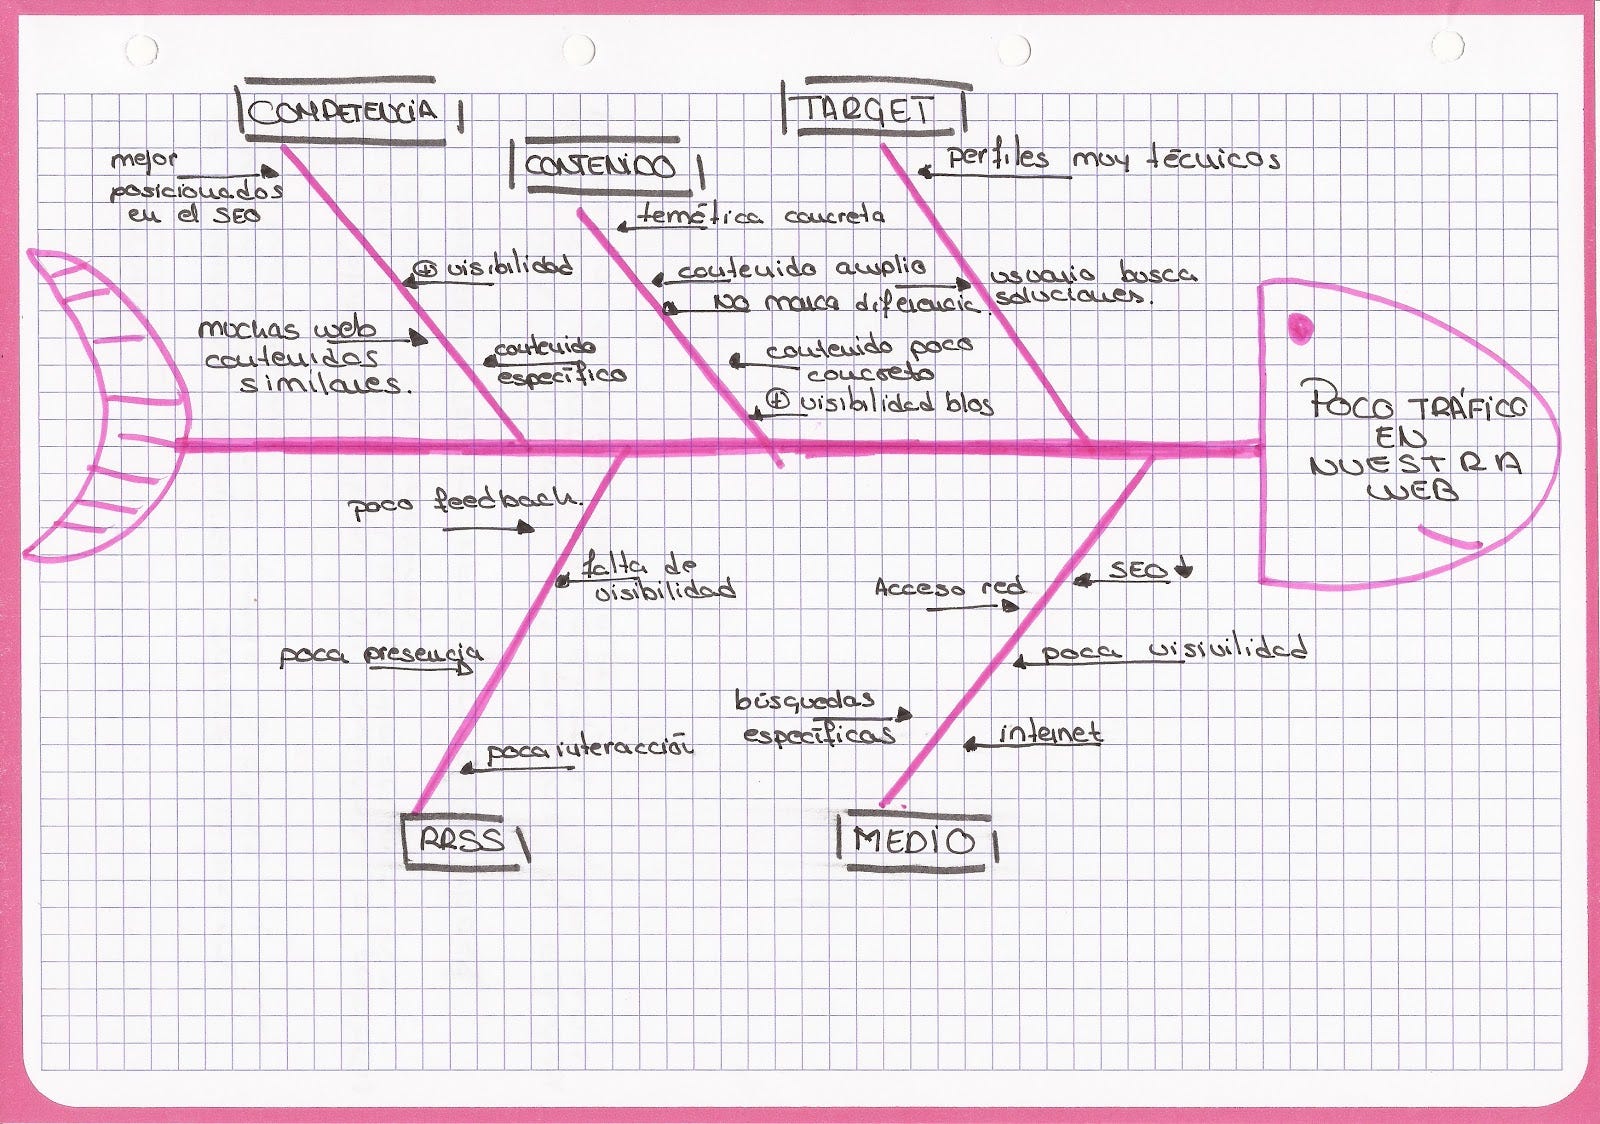 COMPETENCIA
mejor
posicionados
en el SEO
⊕ visibilidad
muchas web
contenidos
similares.
contenido
específico
CONTENIDO
temática concreta
contenido amplio
No marca diferencia.
contenido poco
concreto
⊕ visibilidad blog
TARGET
perfiles muy técnicos
usuario busca
soluciones.
POCO TRÁFICO
EN
NUESTRA
WEB
poco feedback.
falta de
visibilidad
poca presencia
poca interacción
RRSS
SEO ↓
Acceso red
poca visivilidad
búsquedas
específicas
internet
MEDIO